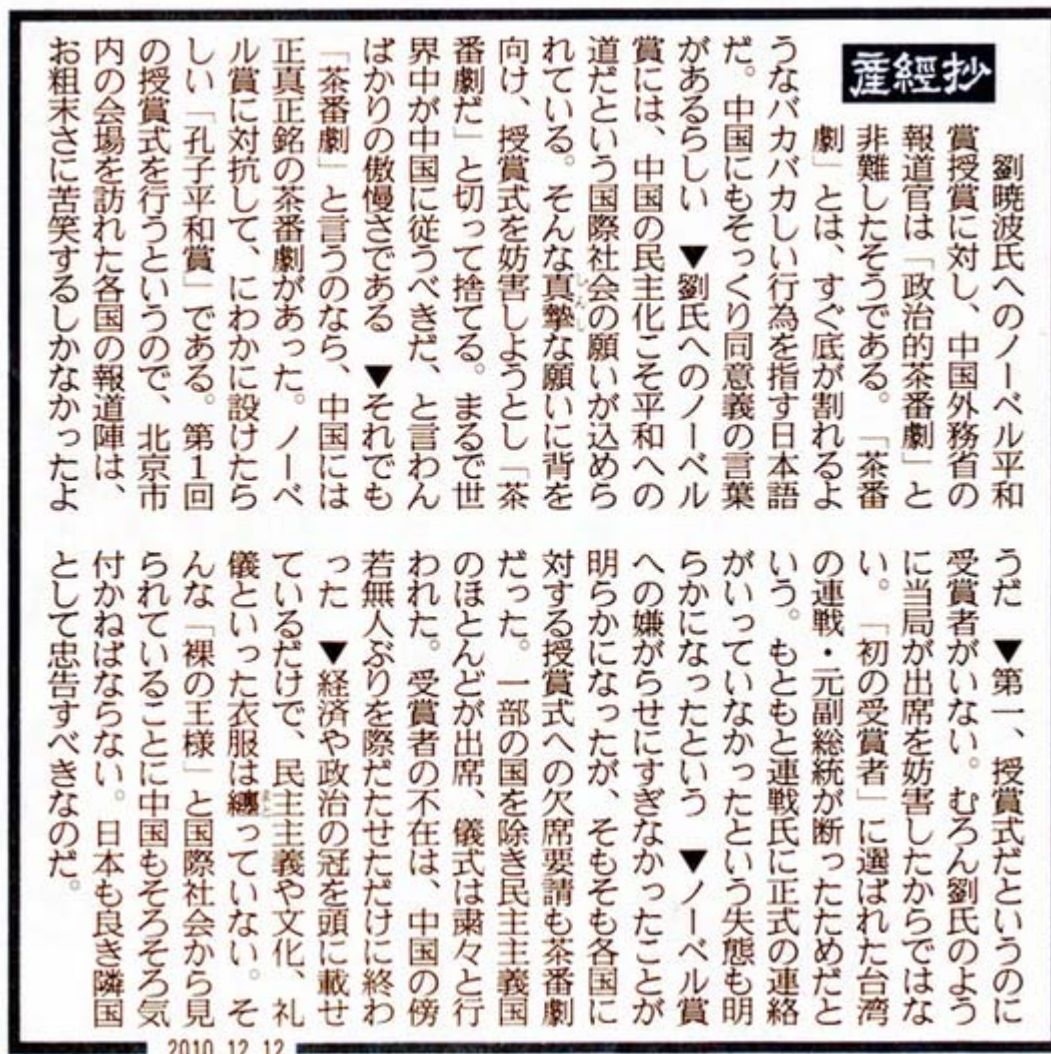 産経抄
劉暁波氏へのノーベル平和
賞授賞に対し、中国外務省の
報道官は「政治的茶番劇」と
非難したそうである。「茶番
劇」とは、すぐ底が割れるよ
うなバカバカしい行為を指す日本語
だ。中国にもそっくり同意義の言葉
があるらしい ▼劉氏へのノーベル
賞には、中国の民主化こそ平和への
道だという国際社会の願いが込めら
れている。そんな真摯な願いに背を
しんし
向け、授賞式を妨害しようとし「茶
番劇だ」と切って捨てる。まるで世
界中が中国に従うべきだ、と言わん
ばかりの傲慢さである ▼それでも
「茶番劇」と言うのなら、中国には
正真正銘の茶番劇があった。ノーベ
ル賞に対抗して、にわかに設けたら
しい「孔子平和賞」である。第1回
の授賞式を行うというので、北京市
内の会場を訪れた各国の報道陣は、
お粗末さに苦笑するしかなかったよ
うだ ▼第一、授賞式だというのに
受賞者がいない。むろん劉氏のよう
に当局が出席を妨害したからではな
い。「初の受賞者」に選ばれた台湾
の連戦・元副総統が断ったためだと
いう。もともと連戦氏に正式の連絡
がいっていなかったという失態も明
らかになったという ▼ノーベル賞
への嫌がらせにすぎなかったことが
明らかになったが、そもそも各国に
対する授賞式への欠席要請も茶番劇
だった。一部の国を除き民主主義国
のほとんどが出席、儀式は粛々と行
われた。受賞者の不在は、中国の傍
若無人ぶりを際だたせただけに終わ
った ▼経済や政治の冠を頭に載せ
ているだけで、民主主義や文化、礼
儀といった衣服は纏っていない。そ
まと
んな「裸の王様」と国際社会から見
られていることに中国もそろそろ気
付かねばならない。日本も良き隣国
として忠告すべきなのだ。
2010.12.12